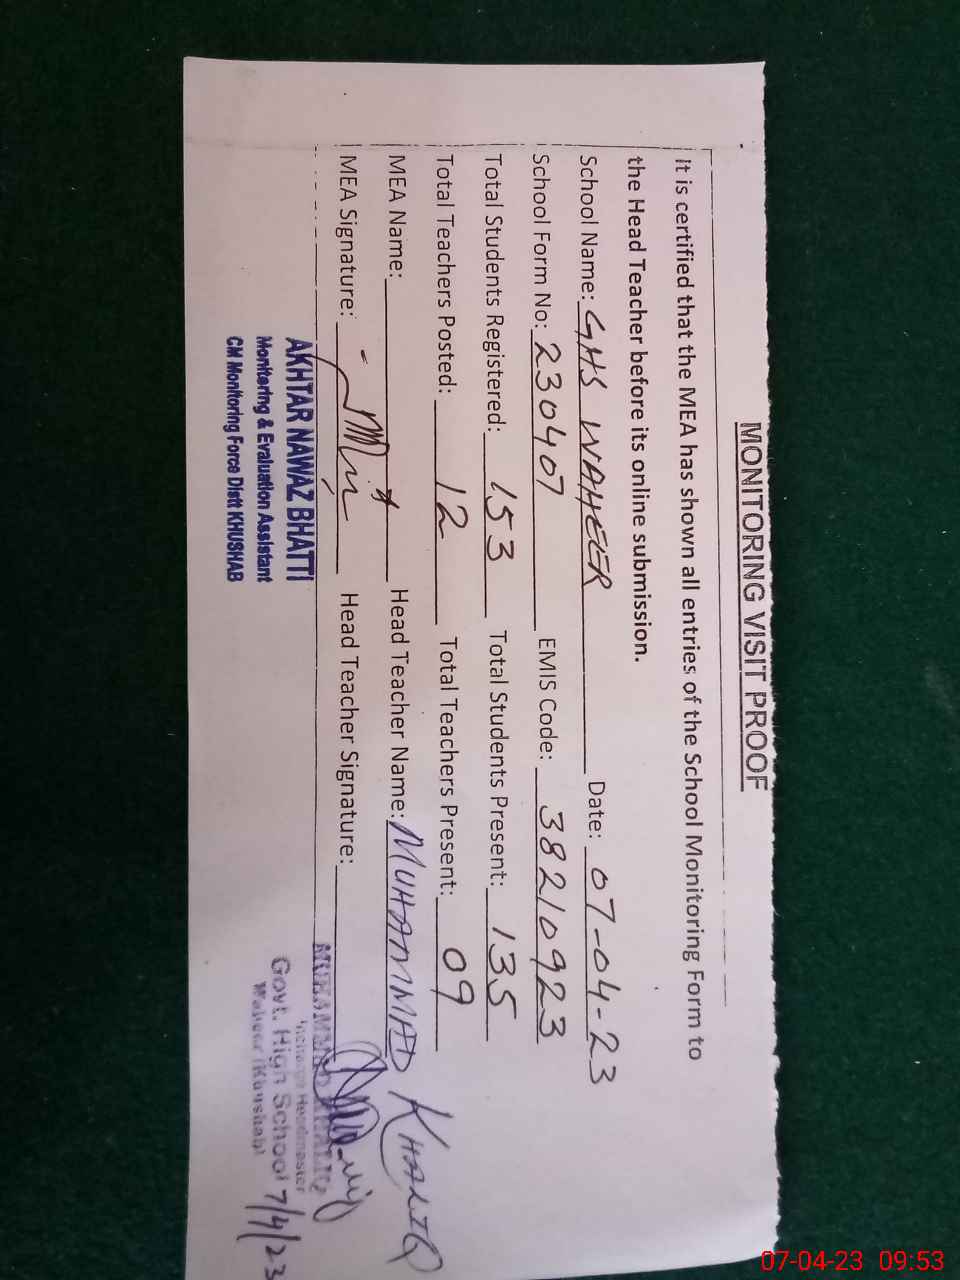 MONITORING VISIT PROOF
It is certified that the MEA has shown all entries of the School Monitoring Form to
the Head Teacher before its online submission.
School Name: GHS WAHEER Date: 07-04-23
School Form No: 230407 EMIS Code: 38210923
Total Students Registered: 153 Total Students Present: 135
Total Teachers Posted: 12 Total Teachers Present: 09
MEA Name: Head Teacher Name: MUHAMMAD KHALIQ
MEA Signature: Head Teacher Signature:
AKHTAR NAWAZ BHATTI
Monitoring & Evaluation Assistant
CM Monitoring Force Distt KHUSHAB
MUHAMMAD KHALIQ
Incharge Headmaster
Govt. High School
Waheer (Khushab)
7/4/23
07-04-23 09:53